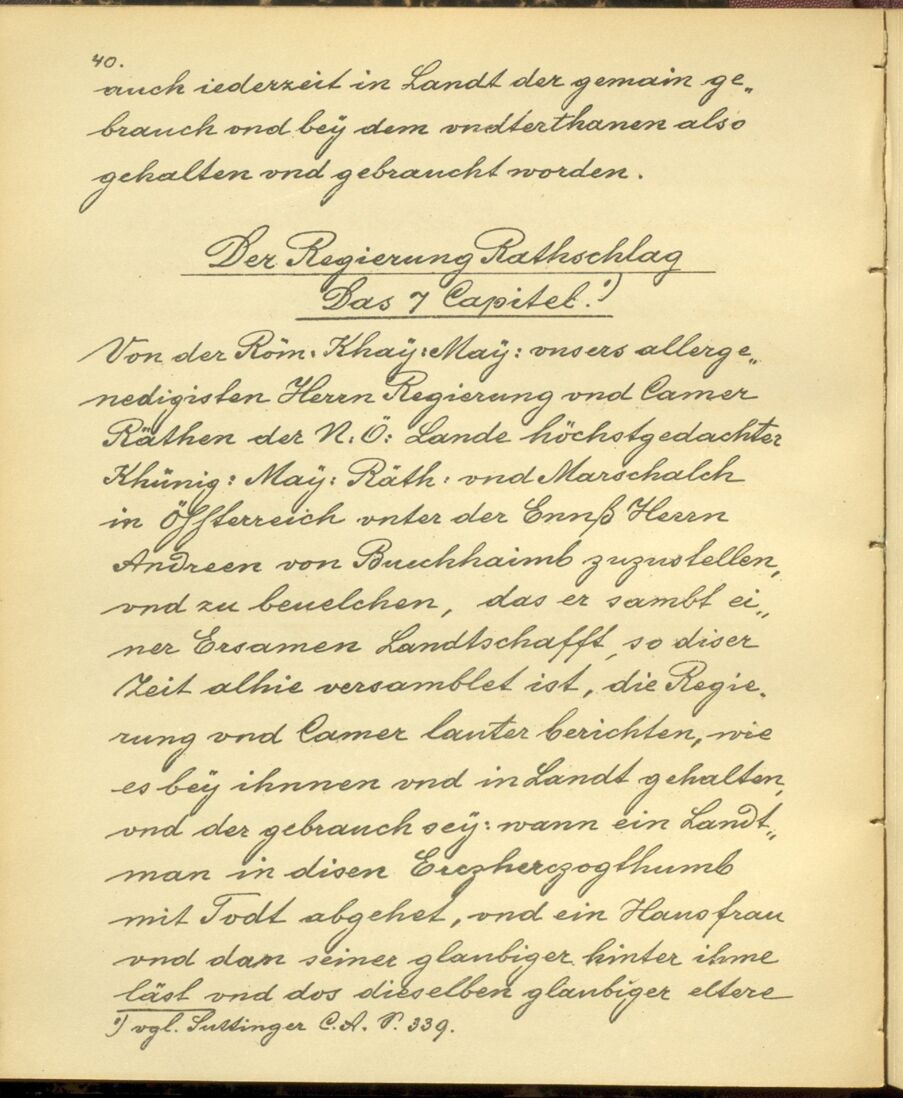 40.
auch iederzeit in Landt der gemain ge„
brauch vnd beÿ dem vndterthanen also
gehalten vnd gebraucht worden.
Der Regierung Rathschlag
Das 7 Capitel.¹)
Von der Röm: Khaÿ: Maÿ: vnsers allerge„
nedigisten Herrn Regierung vnd Camer
Räthen der N: Ö: Lande höchstgedachter
Khünig: Maÿ: Räth: vnd Marschalch
in Össterreich vnter der Ennß Herrn
Andreen von Buechhaimb zuzustellen,
vnd zu beuelchen, das er sambt ei„
ner Ersamen Landtschafft, so diser
Zeit alhie versamblet ist, die Regie„
rung vnd Camer lauter berichten, wie
es beÿ ihnnen vnd in Landt gehalten,
vnd der gebrauch seÿ: wann ein Landt„
man in disen Erczherczogthumb
mit Todt abgehet, vnd ein Hausfrau
vnd dan seiner glaubiger hinter ihme
läst vnd dos dieselben glaubiger eltere
¹) vgl. Suttinger C.A. P. 339.